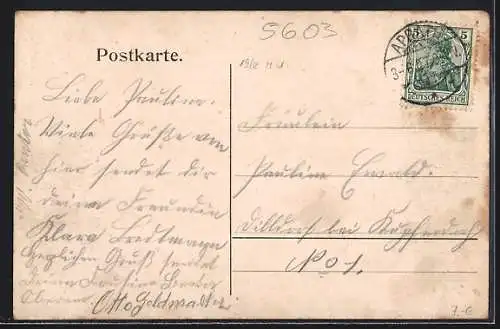 5603
Postkarte.
19/2 11 1
5 5
DEUTSCHES REICH
Liebe Pauline.
Viele Grüße von
hier sendet dir
deine Freundin
Klara
Herzlichen Gruß sendet
Otto Goldwalter
Fräulein
Pauline Ewald.
Dilldorf bei Kupferdreh
No 1.
7.-€